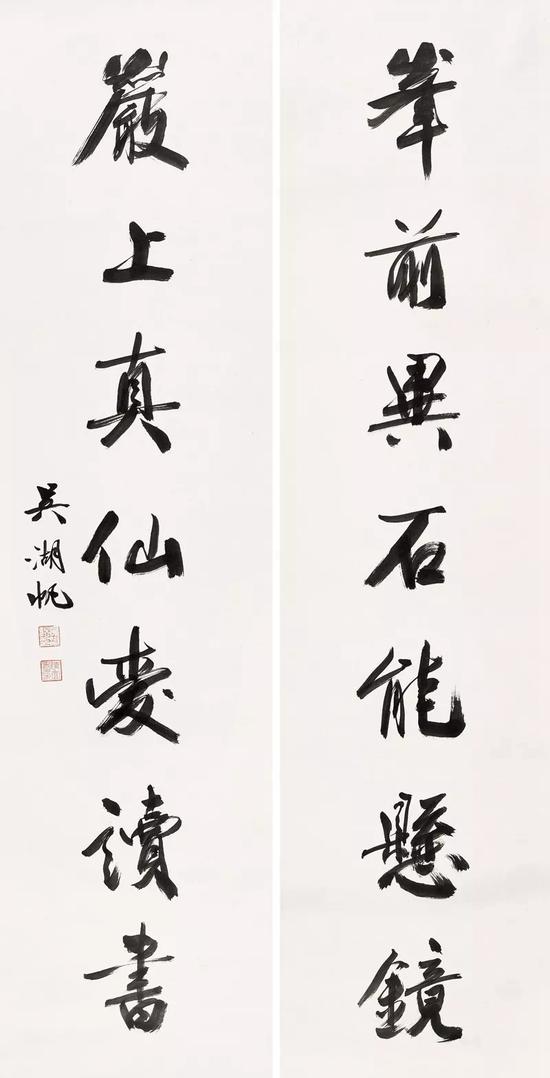 峯前異石能懸鏡
嚴上真仙愛讀書
吳湖帆